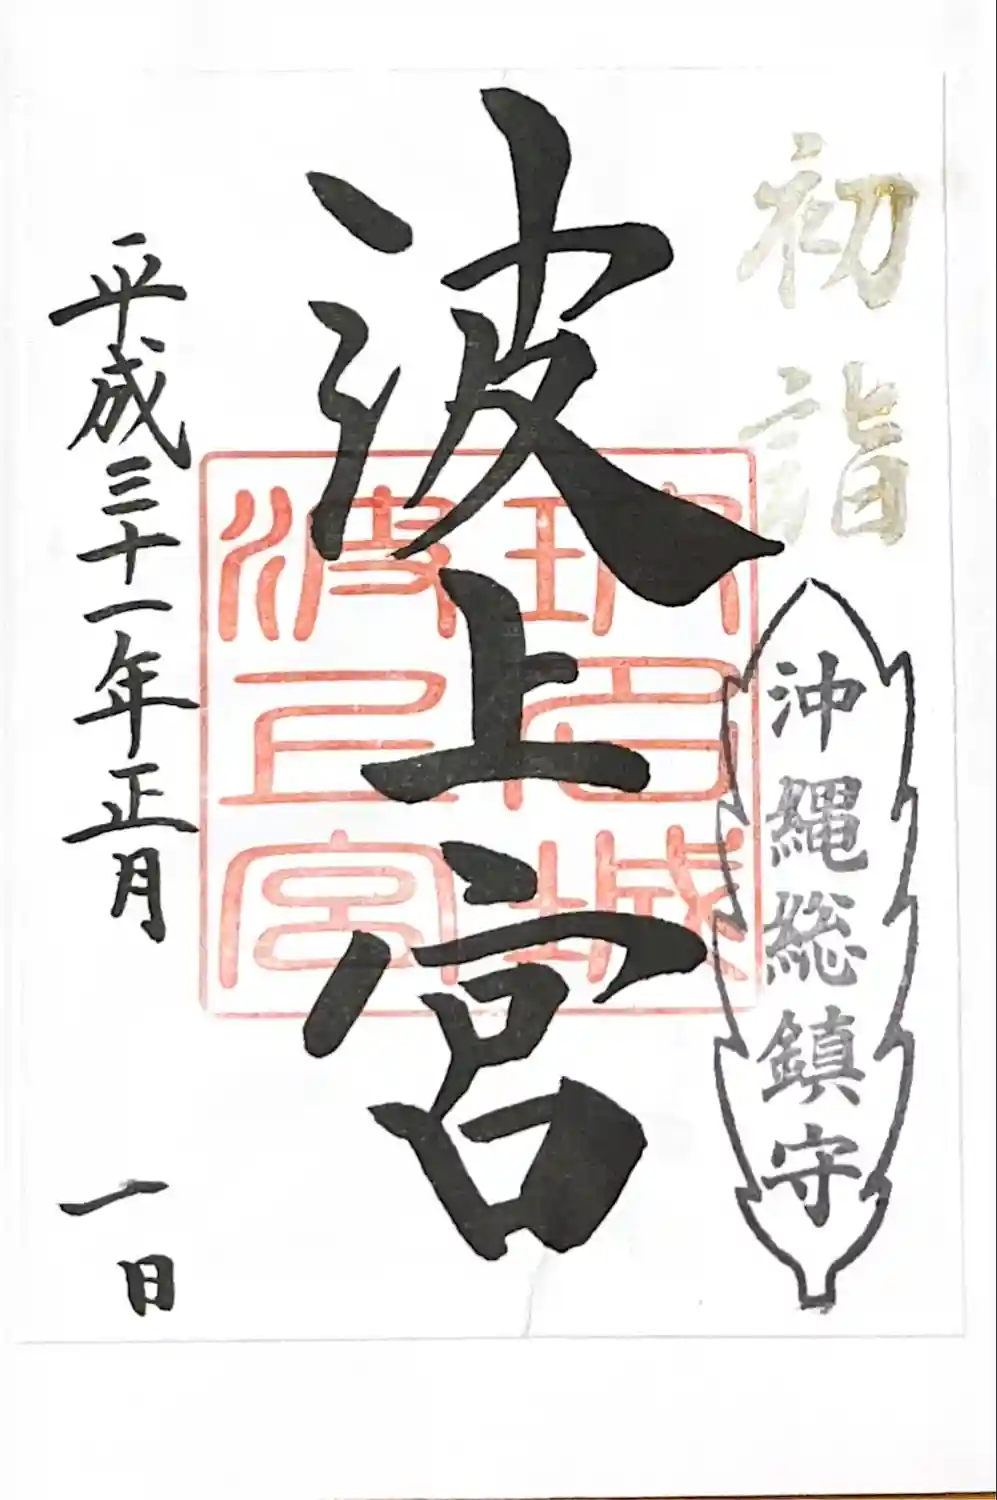 初詣
沖縄総鎮守
波上宮
琉球城
波上宮
平成三十一年正月一日